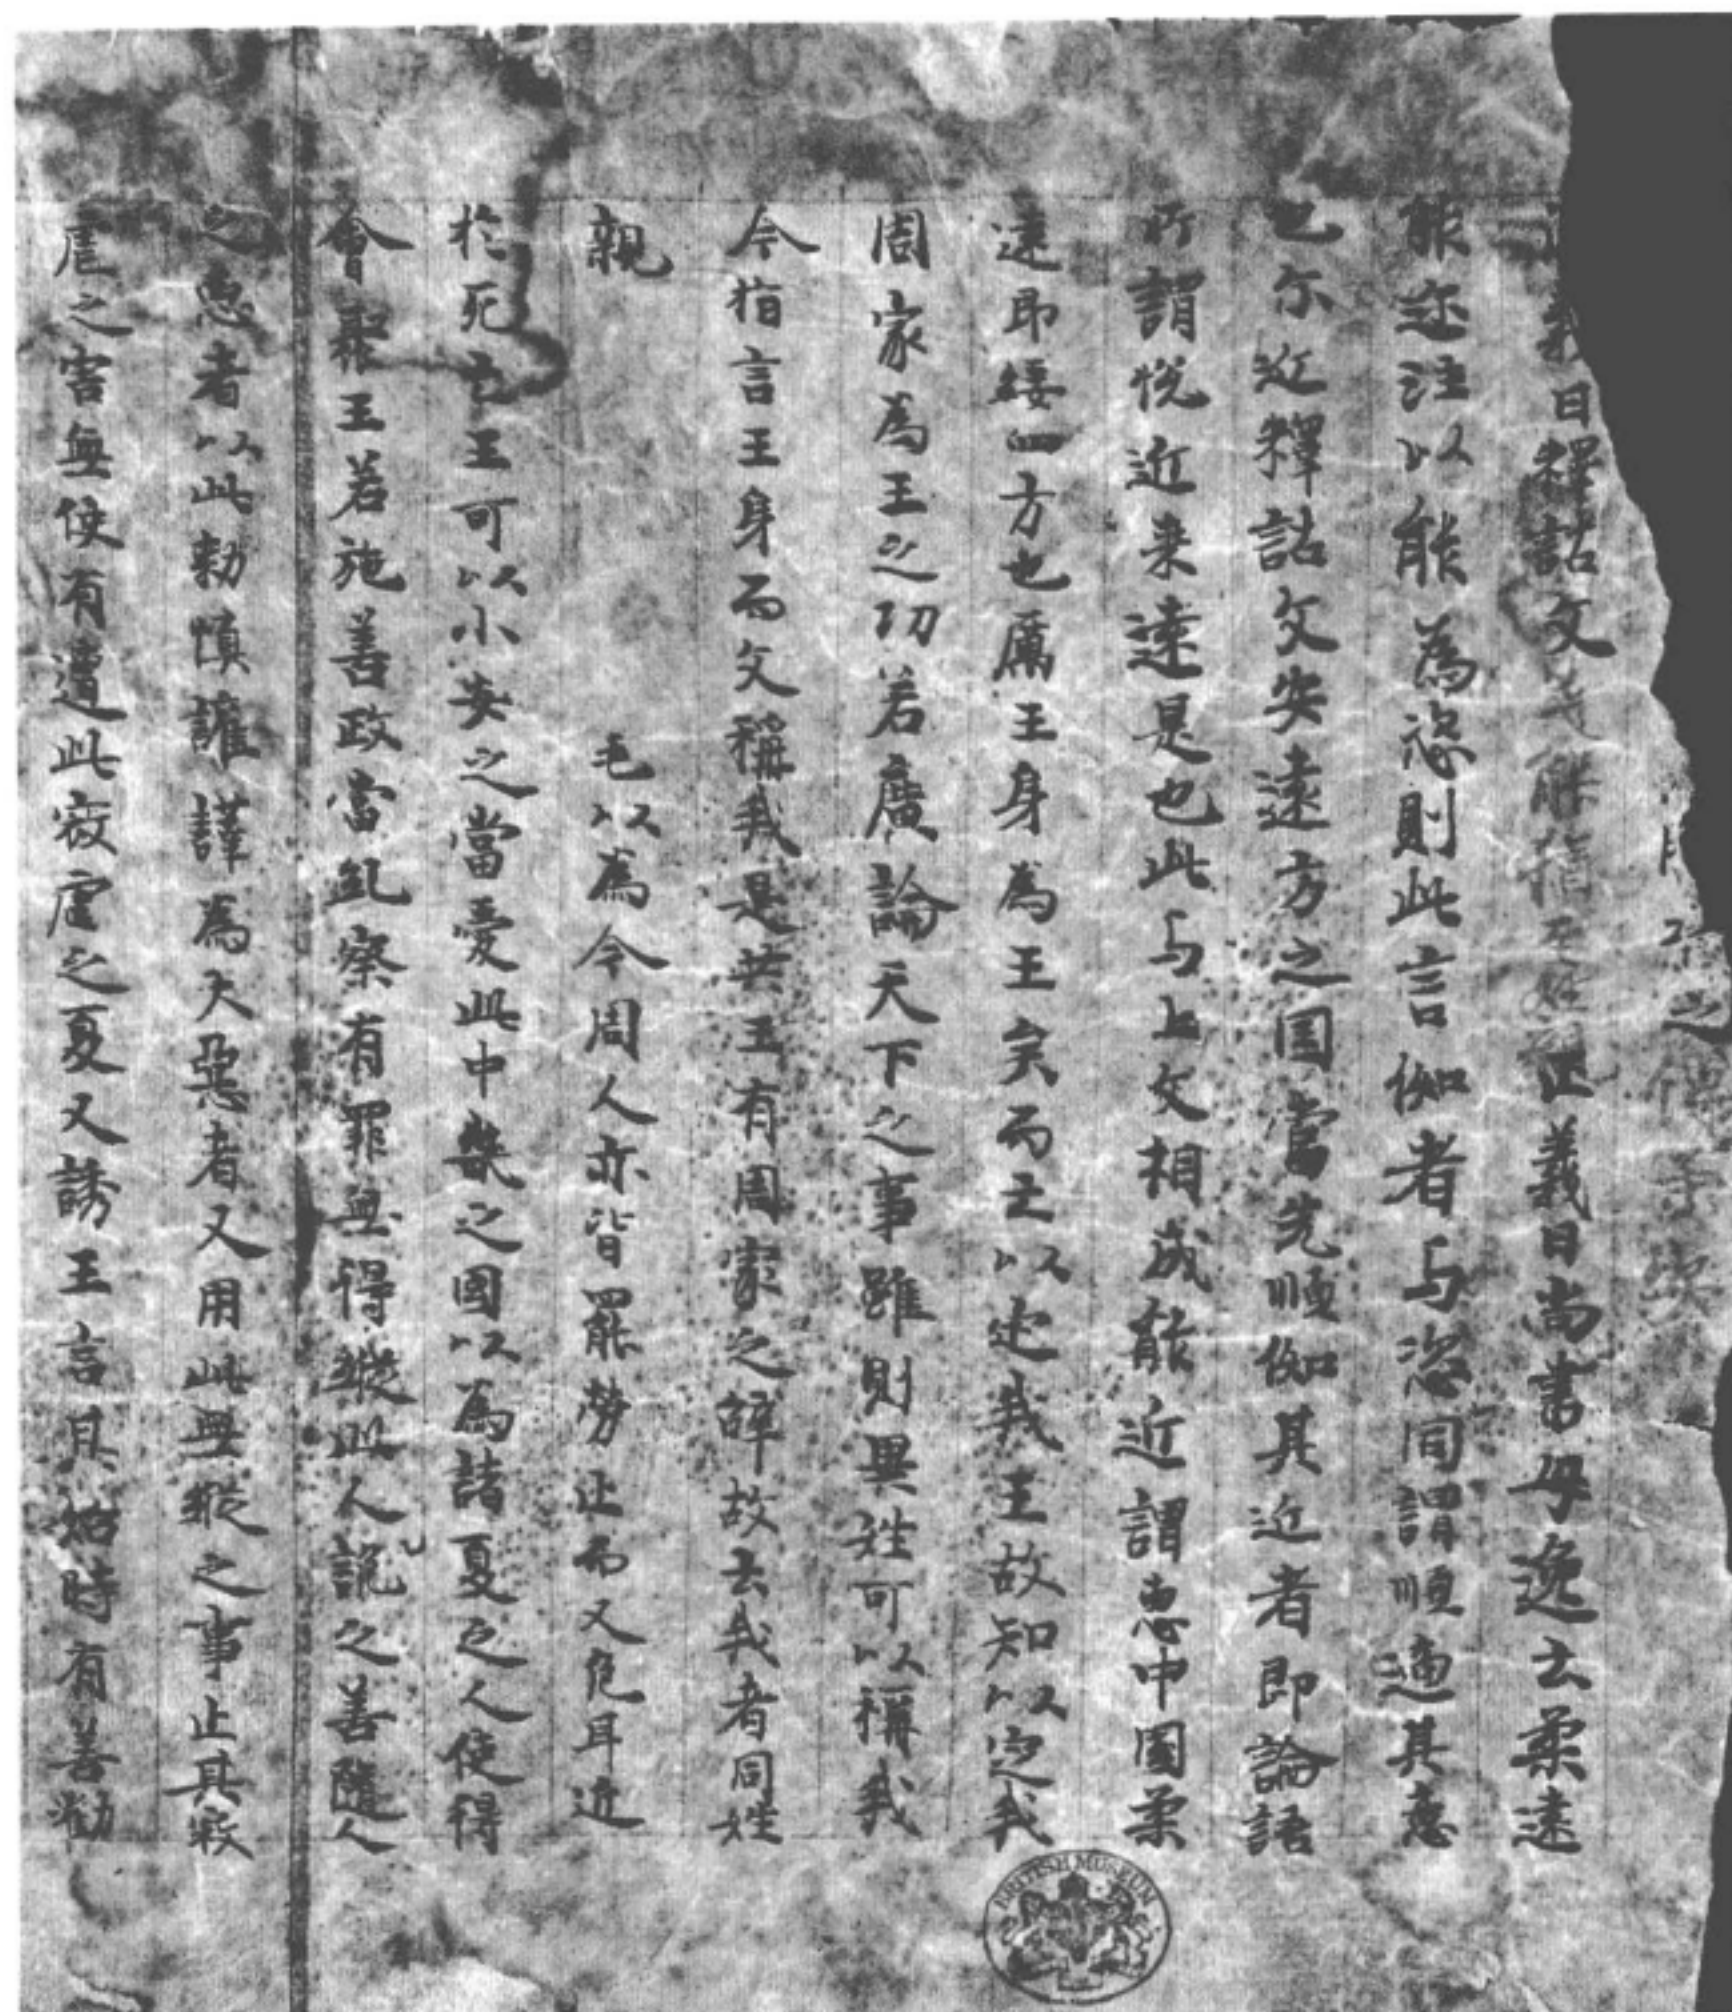 之
義曰釋詁文 正義曰尚書毋逸云柔遠
能迩注以能為恣則此言伽者与恣同謂順適其意
也尓近釋詁文安遠方之国當先順伽其近者即論語
所謂悅近来遠是也此与上文相成能近謂惠中國柔
遠即綏四方也厲王身為王矣而云以定我王故知以定我
周家為王之功若廣論天下之事雖則異姓可以稱我
今指言王身而文稱我是共王有周家之辞故云我者同姓
親 毛以為今周人亦皆罷勞止而又危耳近
於死亡王可以小安之當愛此中畿之國以為諸夏之人使得
會聚王若施善政當糺察有罪無得縱此人詭之善隨人
之惡者以此勑慎讙謹為大惡者又用此無縱之事止其寇
虐之害無使有遭此寇虐之憂又誘王言其始時有善勸